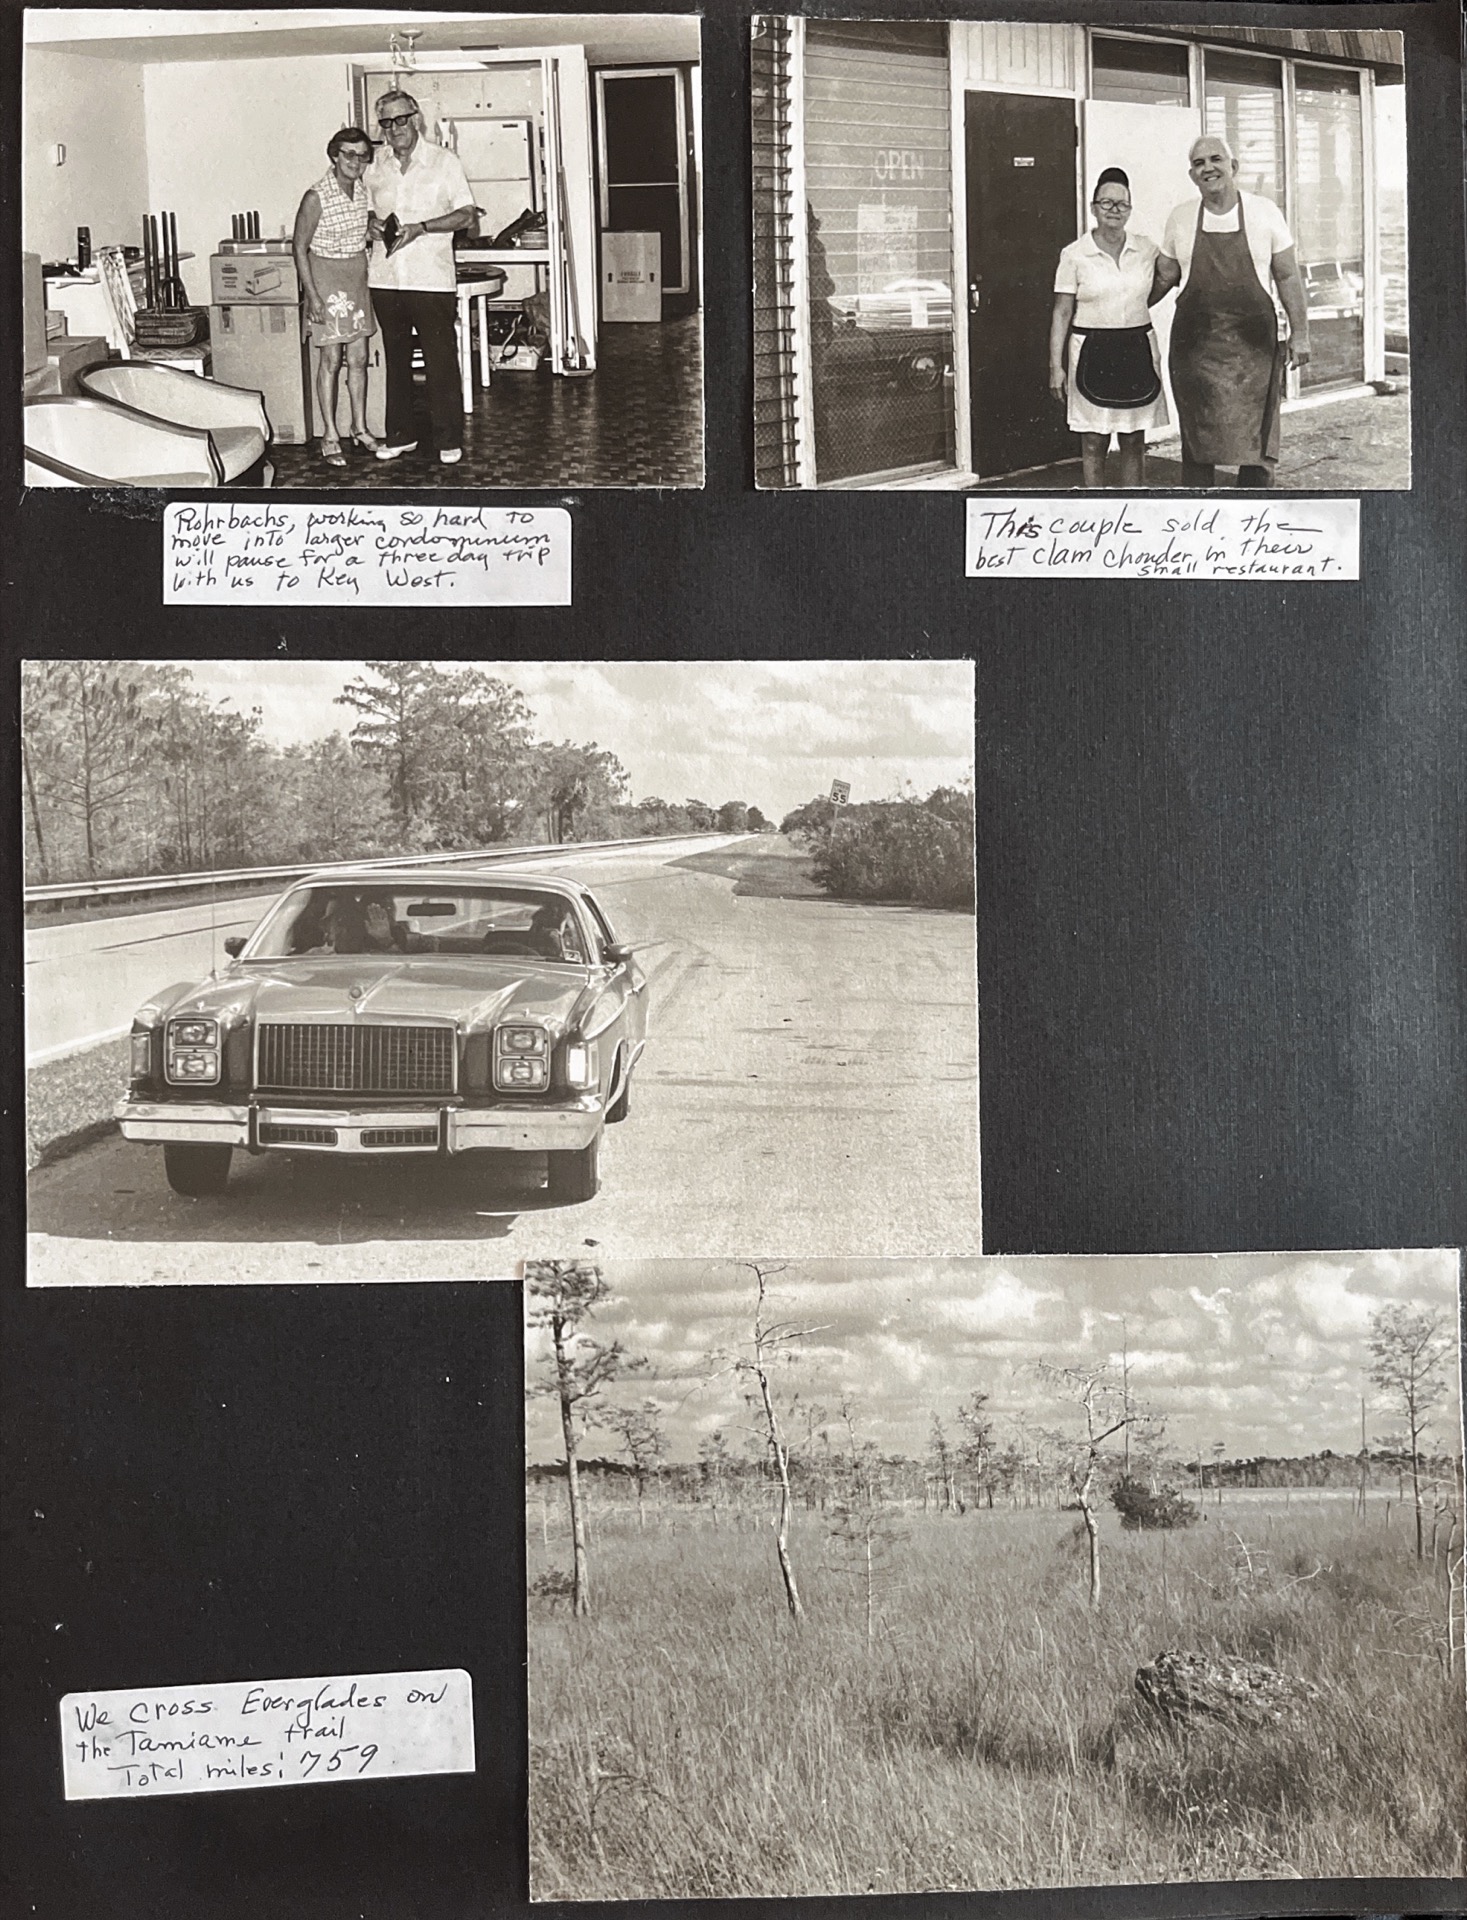 OPEN
Rohrbachs, working so hard to
move into larger condominuum
will pause for a three day trip
with us to Key West.
This couple sold the
best clam chowder in their
small restaurant.
55
We cross Everglades on
the Tamiame trail
Total miles: 759